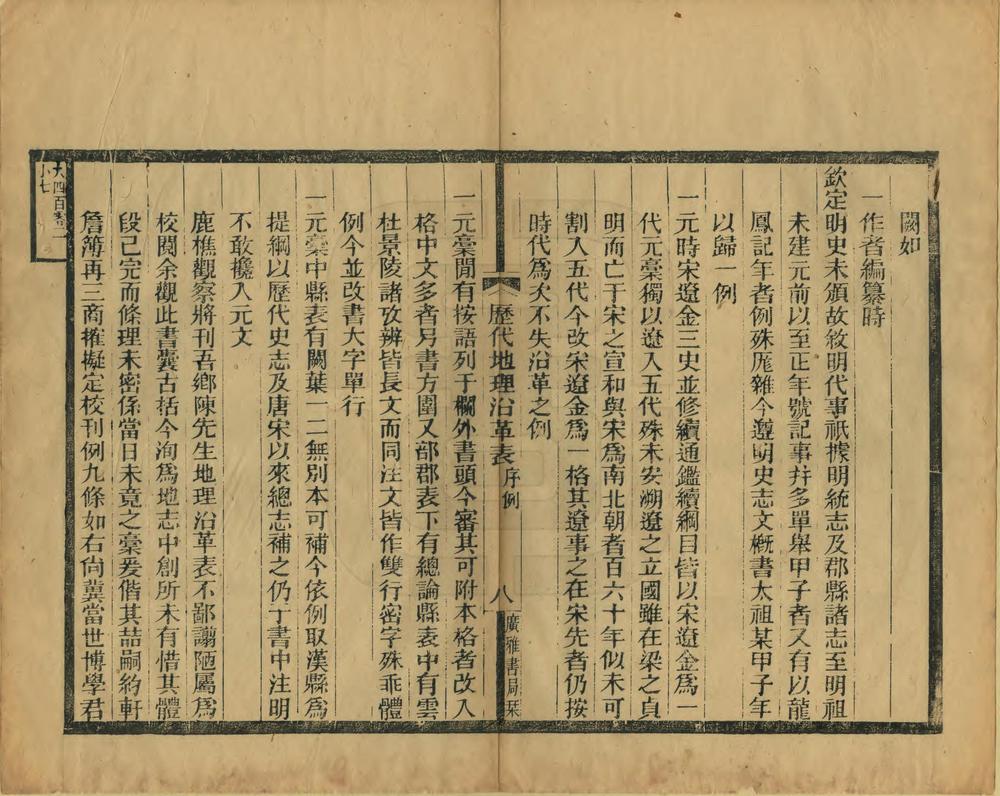 闕如
一作者編纂時
欽定明史未頒故敘明代事祇據明統志及郡縣諸志至明祖
未建元前以至正年號記事并多單舉甲子者又有以龍
鳳記年者例殊厖雜今遵明史志文槪書太祖某甲子年
以歸一例
一元時宋遼金三史並修續通鑑續綱目皆以宋遼金爲一
代元稾獨以遼入五代殊未安溯遼之立國雖在梁之貞
明而亡于宋之宣和與宋爲南北朝者百六十年似未可
割入五代今改宋遼金爲一格其遼事之在宋先者仍按
時代爲次不失沿革之例
歷代地理沿革表 序例 八 廣雅書局栞
一元稾閒有按語列于欄外書頭今審其可附本格者改入
格中文多者另書方圍又部郡表下有總論縣表中有雲
杜景陵諸攷辨皆長文而同注文皆作雙行密字殊乖體
例今並改書大字單行
一元稾中縣表有闕葉一二無別本可補今依例取漢縣爲
提綱以歷代史志及唐宋以來總志補之仍于書中注明
不敢攙入元文
鹿樵觀察將刊吾鄉陳先生地理沿革表不鄙譾陋屬爲
校閱余觀此書囊古括今洵爲地志中創所未有惜其體
段已完而條理未密係當日未竟之稾爰偕其喆嗣約軒
詹簿再三商搉擬定校刊例九條如右尙冀當世博學君
大四百
小七